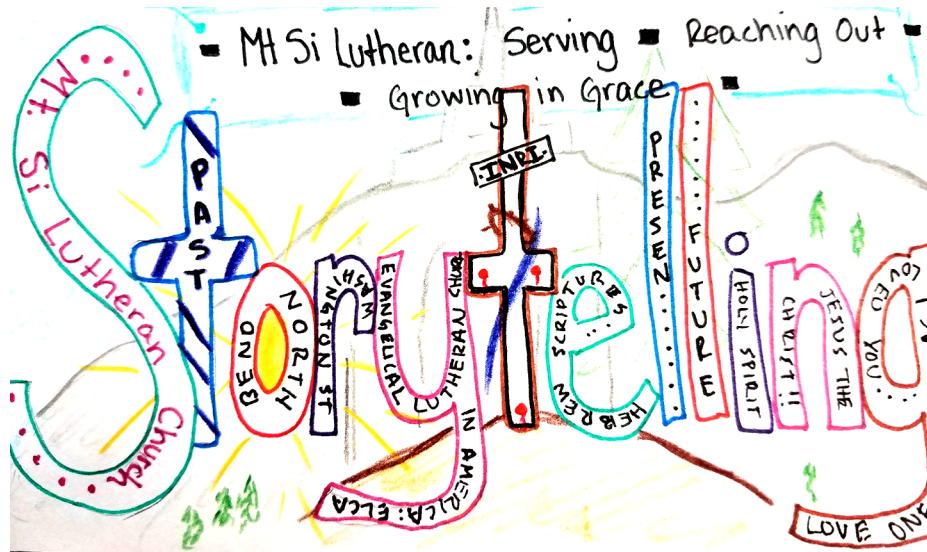 Mt Si Lutheran: Serving ▪ Reaching Out ▪
▪ Growing in Grace ▪
Storytelling
Mt Si Lutheran Church
PAST
NORTH BEND
WASHINGTON ST
EVANGELICAL LUTHERAN CHURC
IN AMERICA: ELCA
.INRI.
HEBREW SCRIPTURES
PRESEN
FUTURE
HOLY SPIRIT
JESUS THE
CHRIST!!
LOVED YOU
LOVE ONE